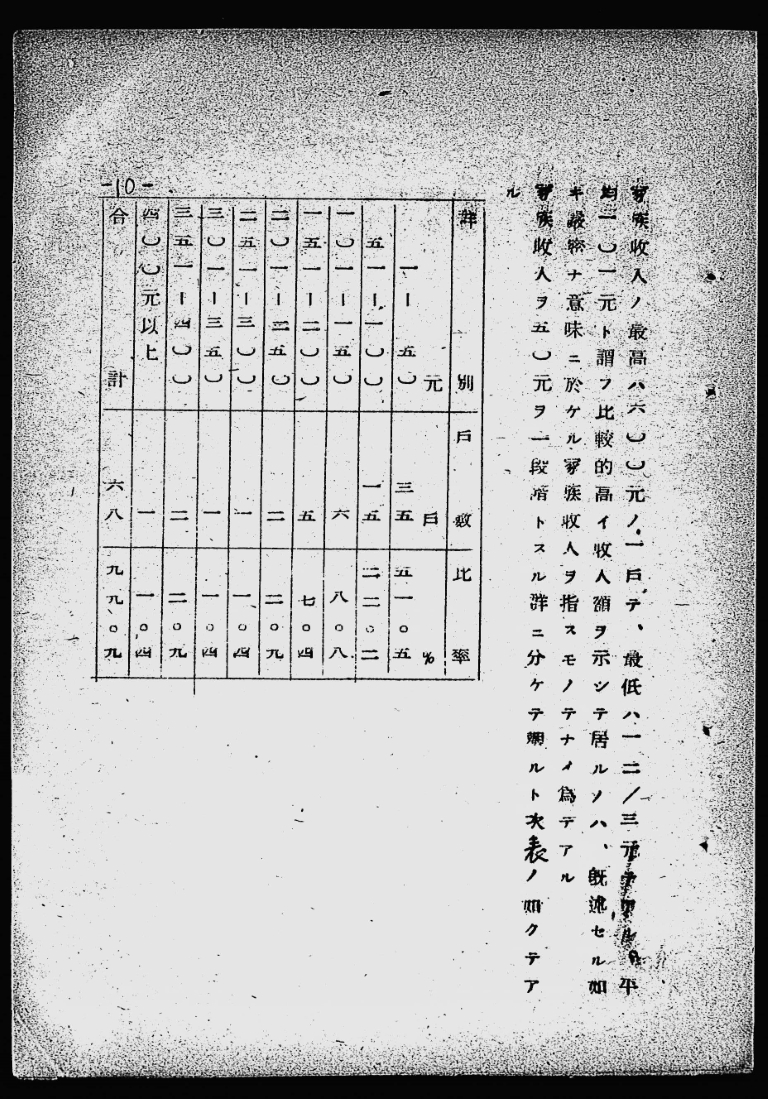 家族收入ノ最高ハ六〇〇元ノ一戶テ、最低ハ一二/三元テアル。平
均一〇一元ト謂フ比較的高イ收入額ヲ示シテ居ルノハ、既述セル如
キ設密ナ意味ニ於ケル家族收入ヲ指スモノテナイ為テアル
家族收入ヲ五〇元ヲ一段階トスル群ニ分ケテ觀ルト次表ノ如クテア
ル
群別 戶數 比率
元 戶 %
一ー五〇 三五 五一。五
五一ー一〇〇 一五 二二。二
一〇一ー一五〇 六 八。八
一五一ー二〇〇 五 七。四
二〇一ー二五〇 二 二。九
二五一ー三〇〇 一 一。四
三〇一ー三五〇 一 一。四
三五一ー四〇〇 二 二。九
四〇〇元以上 一 一。四
合計 六八 九九。九
-10-